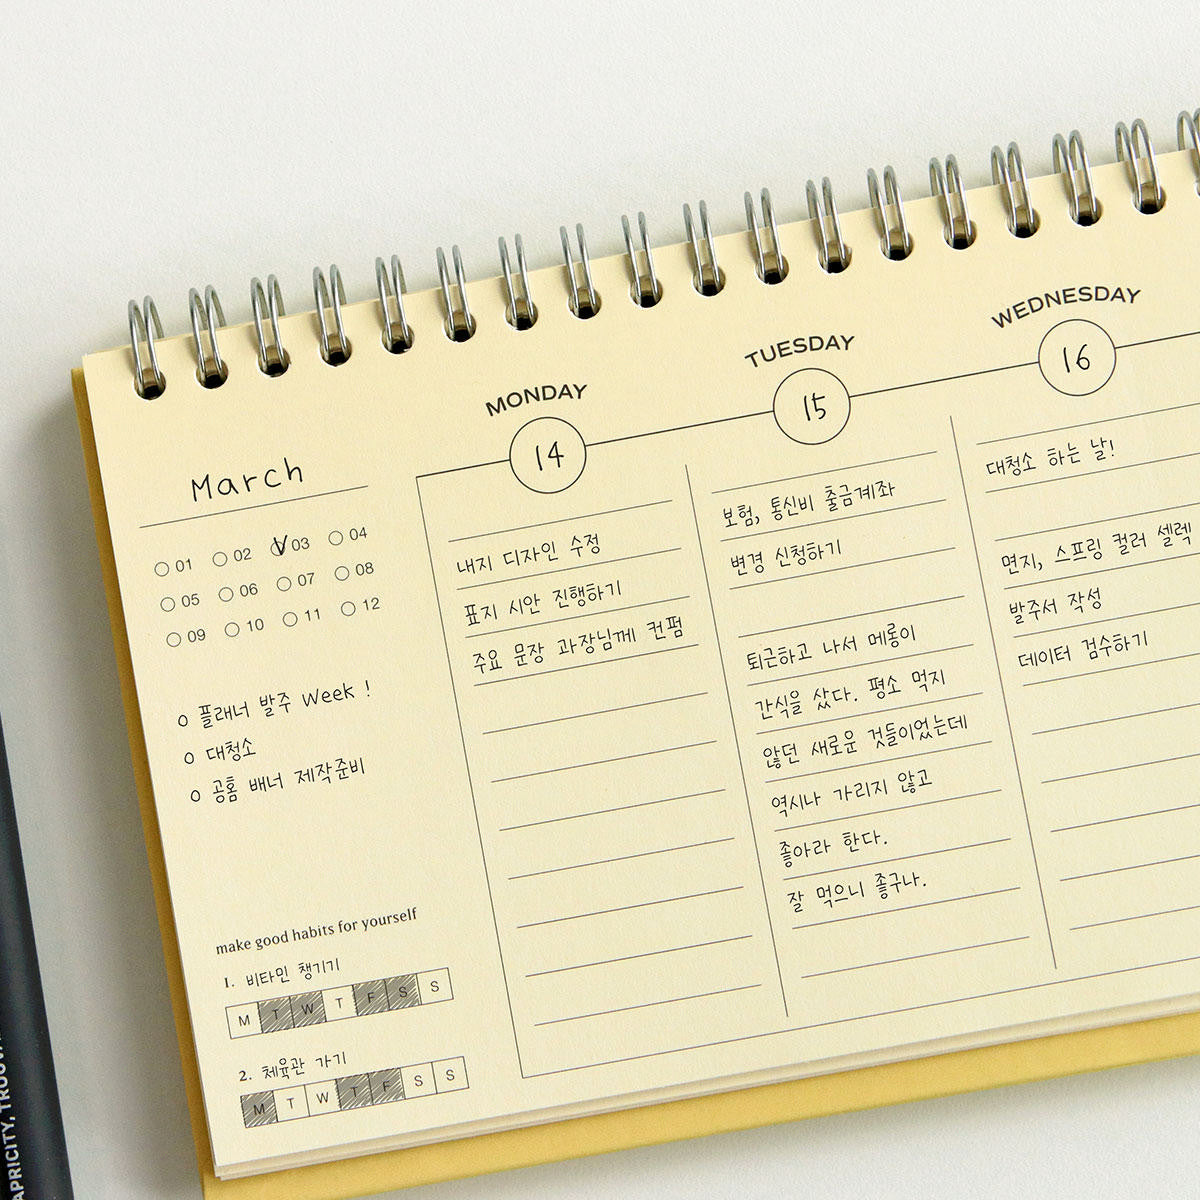 March
01 02 03 04
05 06 07 08
09 10 11 12
o 플래너 발주 Week !
o 대청소
o 공홈 배너 제작준비
make good habits for yourself
1. 비타민 챙기기
M T W T F S S
2. 체육관 가기
M T W T F S S
MONDAY
14
내지 디자인 수정
표지 시안 진행하기
주요 문장 과장님께 컨펌
TUESDAY
15
보험, 통신비 출금계좌
변경 신청하기
퇴근하고 나서 메롱이
간식을 샀다. 평소 먹지
않던 새로운 것들이었는데
역시나 가리지 않고
좋아라 한다.
잘 먹으니 좋구나.
WEDNESDAY
16
대청소 하는 날!
면지, 스프링 컬러 셀렉
발주서 작성
데이터 검수하기